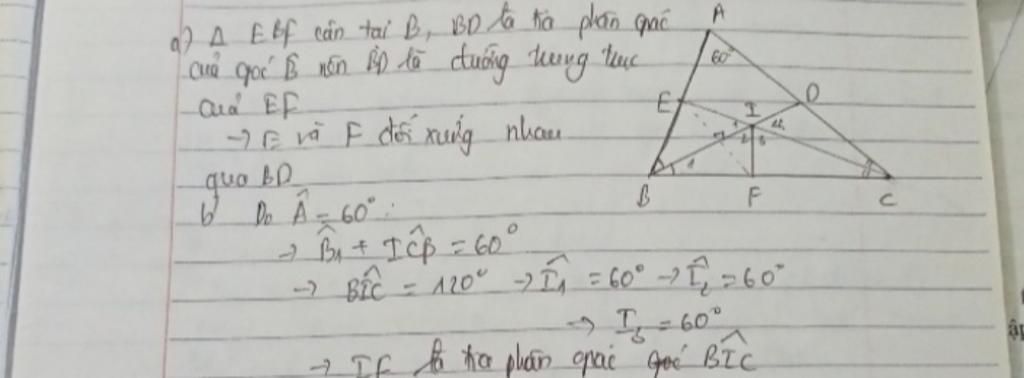 a) Δ EBF cân tại B, BD là tia phân giác
của góc B nên BD là đường trung trực
của EF
→ E và F đối xứng nhau
qua BD
b Do Â = 60° :
→ B̂1 + IĈB = 60°
→ BÎC = 120° → Î1 = 60° → Î2 = 60°
→ I3 = 60°
→ IF là tia phân giác góc BÎC
A
60°
E
D
I
1
2
3
4
1
B
F
C